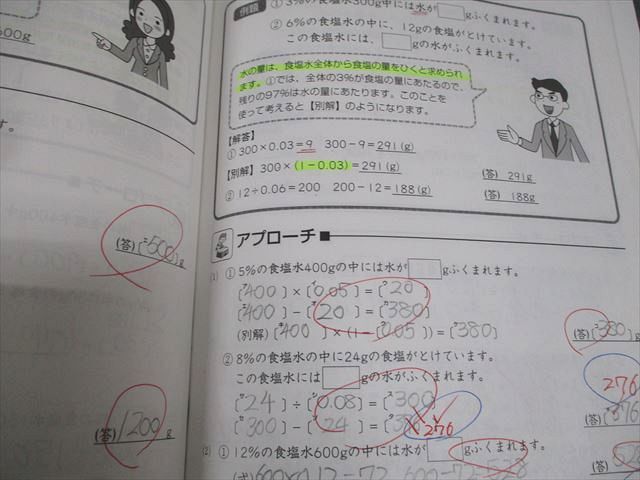 600g
す。
(答)[500]g
(答)1200g
例題
① 3%の食塩水300g中には水が□gふくまれます。
② 6%の食塩水の中に、12gの食塩がとけています。
この食塩水には、□gの水がふくまれます。
水の量は、食塩水全体から食塩の量をひくと求められ
ます。①では、全体の3%が食塩の量にあたるので、
残りの97%は水の量にあたります。このことを
使って考えると【別解】のようになります。
【解答】
① 300×0.03=9 300-9=291(g)
【別解】300×(1-0.03)=291(g)
(答) 291g
② 12÷0.06=200 200-12=188(g)
(答) 188g
アプローチ
(1) ① 5%の食塩水400gの中には水が□gふくまれます。
[400]×[0.05]=[20]
[400]-[20]=[380]
(別解)[400]×(1-[0.05])=[380]
(答)[380]g
② 8%の食塩水の中に24gの食塩がとけています。
この食塩水には□gの水がふくまれます。
[24]÷[0.08]=[300]
[300]-[24]=
276
276
(答)[376]
(2) ① 12%の食塩水600gの中には水が□gふくまれます。
(式)600×0.12=72 600-72=528
528